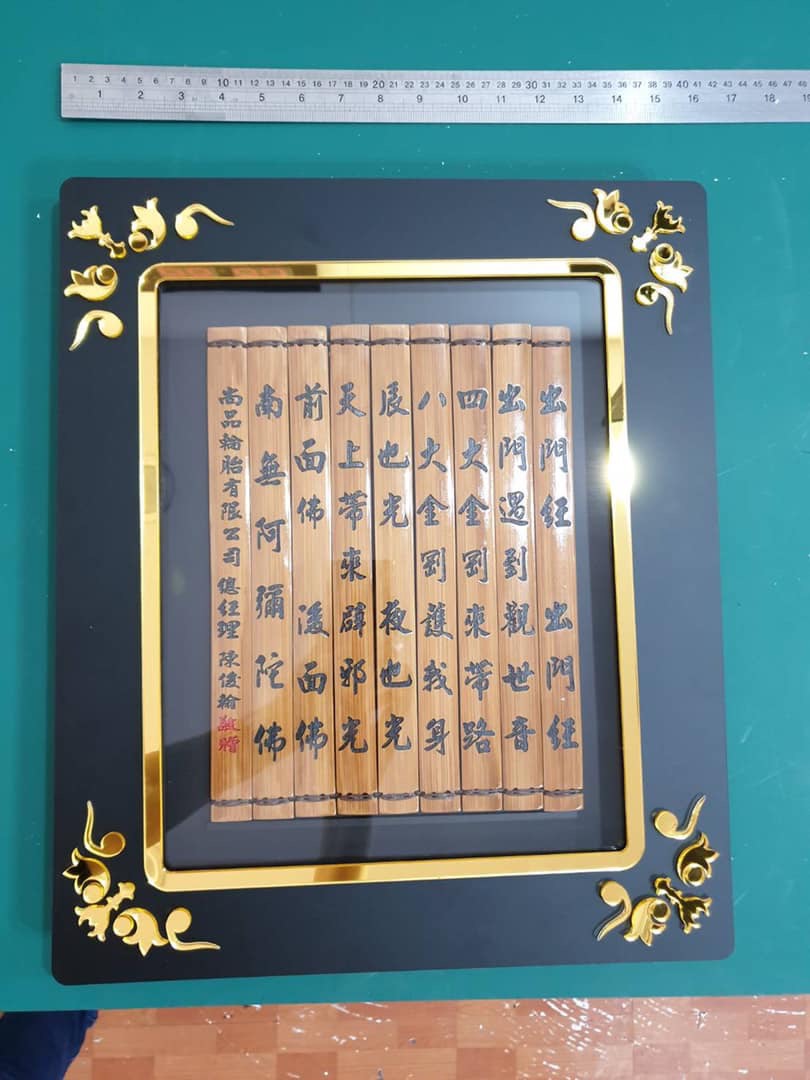 1 2 3 4 5 6 7 8 9 10 11 12 13 14 15 16 17 18 19 20 21 22 23 24 25 26 27 28 29 30 31 32 33 34 35 36 37 38 39 40 41 42 43 44 45 46 47 48
1 2 3 4 5 6 7 8 9 10 11 12 13 14 15 16 17 18 19
出門經 出門經
出門遇到觀世音
四大金剛來帶路
八大金剛護我身
辰也光 夜也光
天上帶來辟邪光
前面佛 後面佛
南無阿彌陀佛
尚品輪胎有限公司 總經理 陳俊翰 敬贈